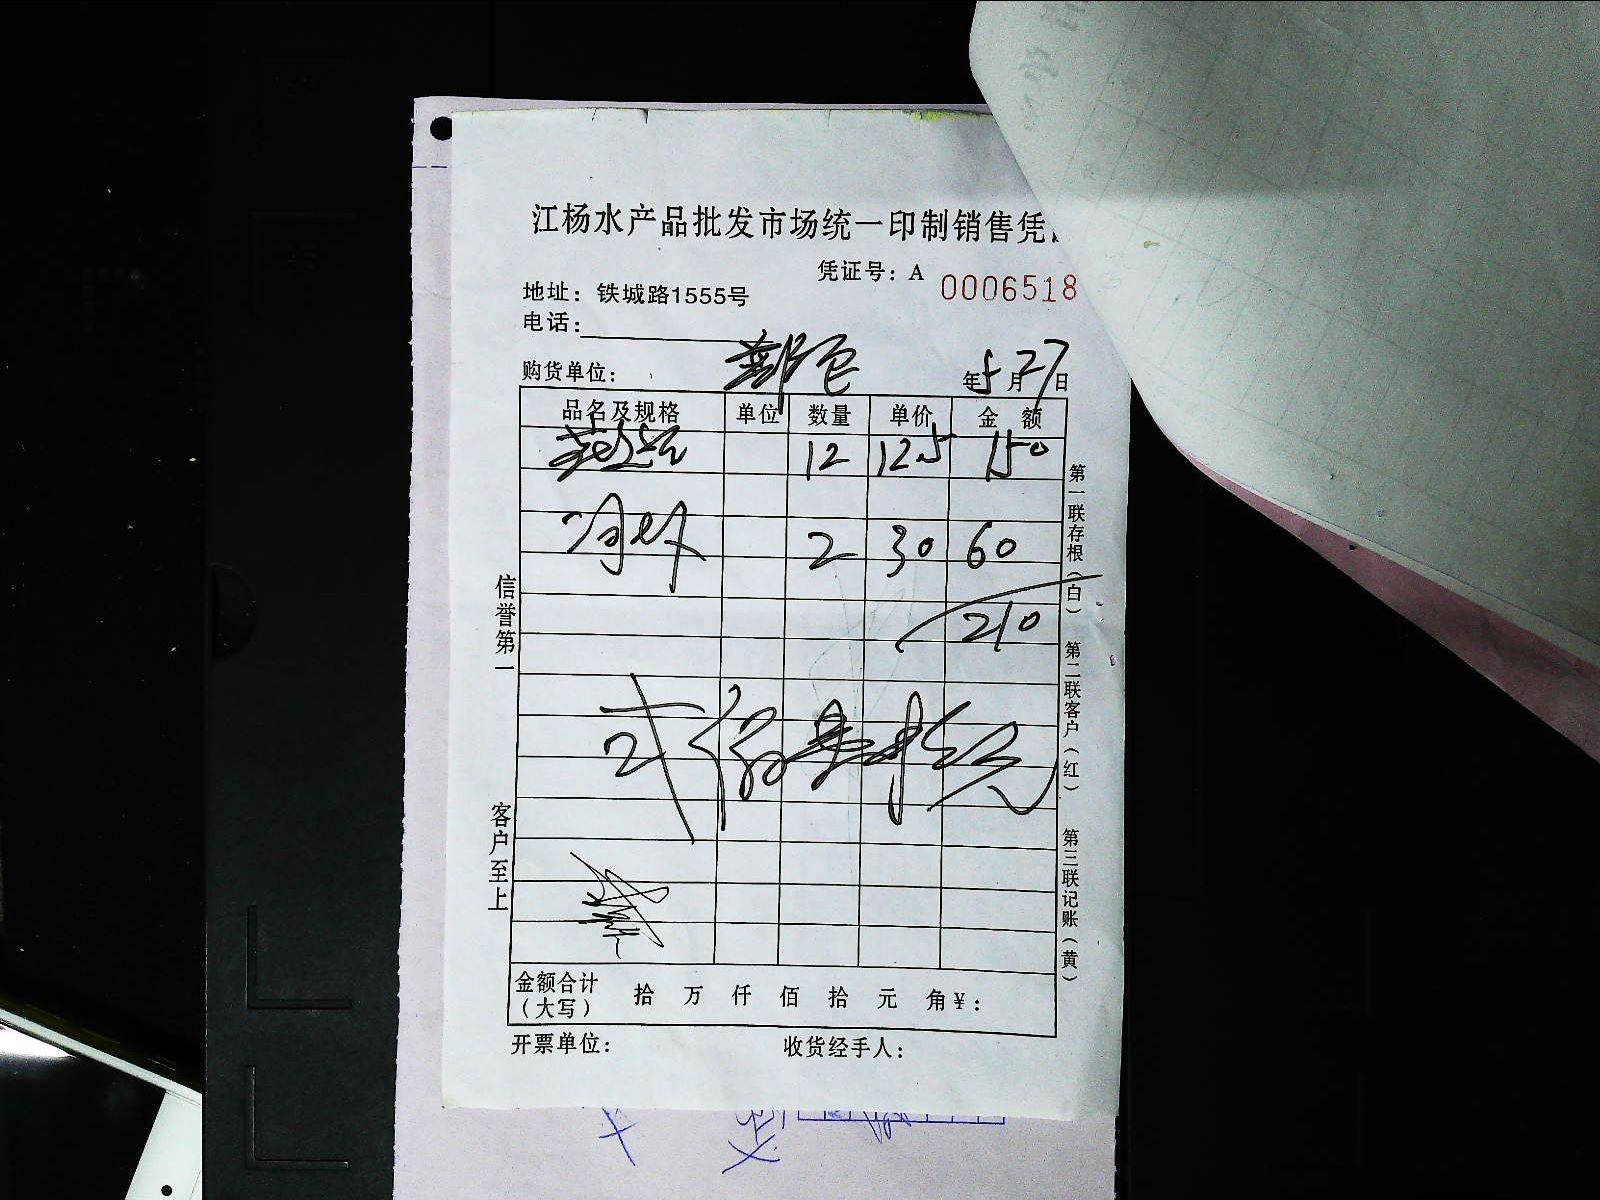 江杨水产品批发市场统一印制销售凭
凭证号：A 0006518
地址：铁城路1555号
电话：
购货单位： 年5月27日
品名及规格 单位 数量 单价 金额
12 12.5 150
2 30 60
210
贰佰壹拾元
金额合计（大写） 拾 万 仟 佰 拾 元 角 ¥：
开票单位： 收货经手人：
信誉第一
客户至上
第一联存根（白） 第二联客户（红） 第三联记账（黄）